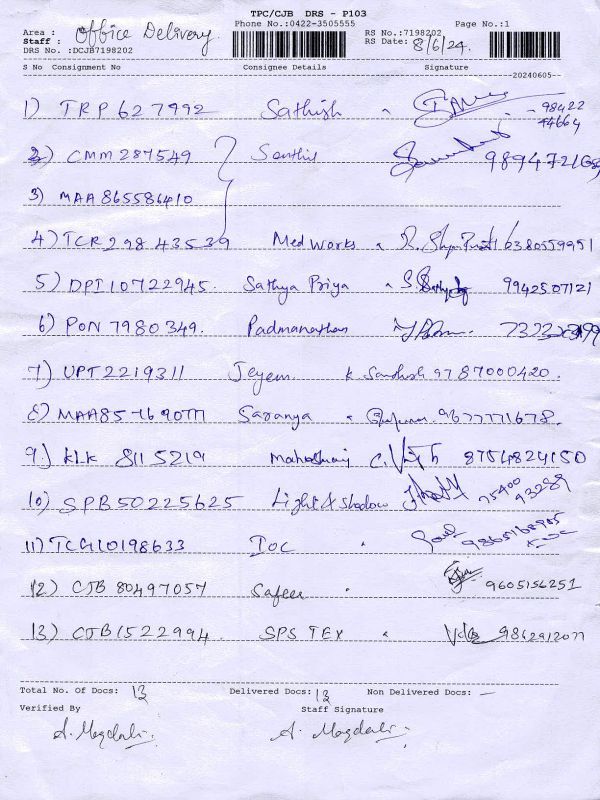 TPC/CJB DRS - P103
Area : Office Delivery Phone No.:0422-3505555 RS No.:7198202 Page No.:1
Staff : RS Date: 8/6/24.
DRS No. :DCJB7198202
S No Consignment No Consignee Details Signature
--20240605--
1) TRP 627992 Sathish " 98422
44664
2) CMM 287549 Senthil 989472
3) MAA 865586410
4) TCR 298 43539 Med Works " 6380559951
5) DPI 10722945. Sathya Priya " 9942507121
6) PON 7980349. Padmanathan
7) UPT 2219311 Jeyem. K. Santhosh 9787000420.
8) MAA857169077 Saranya " 9677771678.
9) KLK 8115219 8754824150
10) SPB50225625 Light & Shadow 75400
93289
11) TCG10198633 IOC " 9865168905
12) CJB 80497057 Safeer " 9605156251
13) CJB1522994. SPS TEX " 9862912077
Total No. Of Docs: 13 Delivered Docs: 13 Non Delivered Docs: —
Verified By Staff Signature
A. Magdali. A. Magdali.